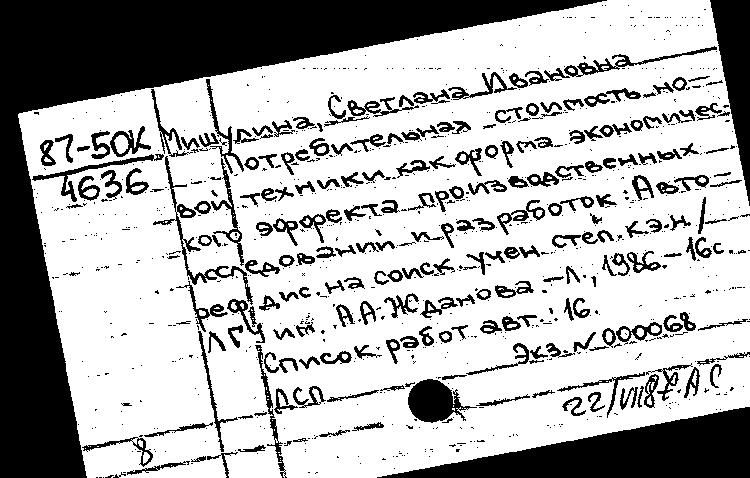 87-50К
4636
Мишулина, Светлана Ивановна
Потребительная стоимость но-
вой техники как форма экономичес-
кого эффекта производственных
исследований и разработок: Авто-
реф. дис. на соиск. учен. степ. к.э.н./
ЛГУ им. А.А.Жданова. -Л., 1986.-16с.
Список работ авт.: 16.
Экз. N 000068
ДСП
22/VII87. А.С.
8